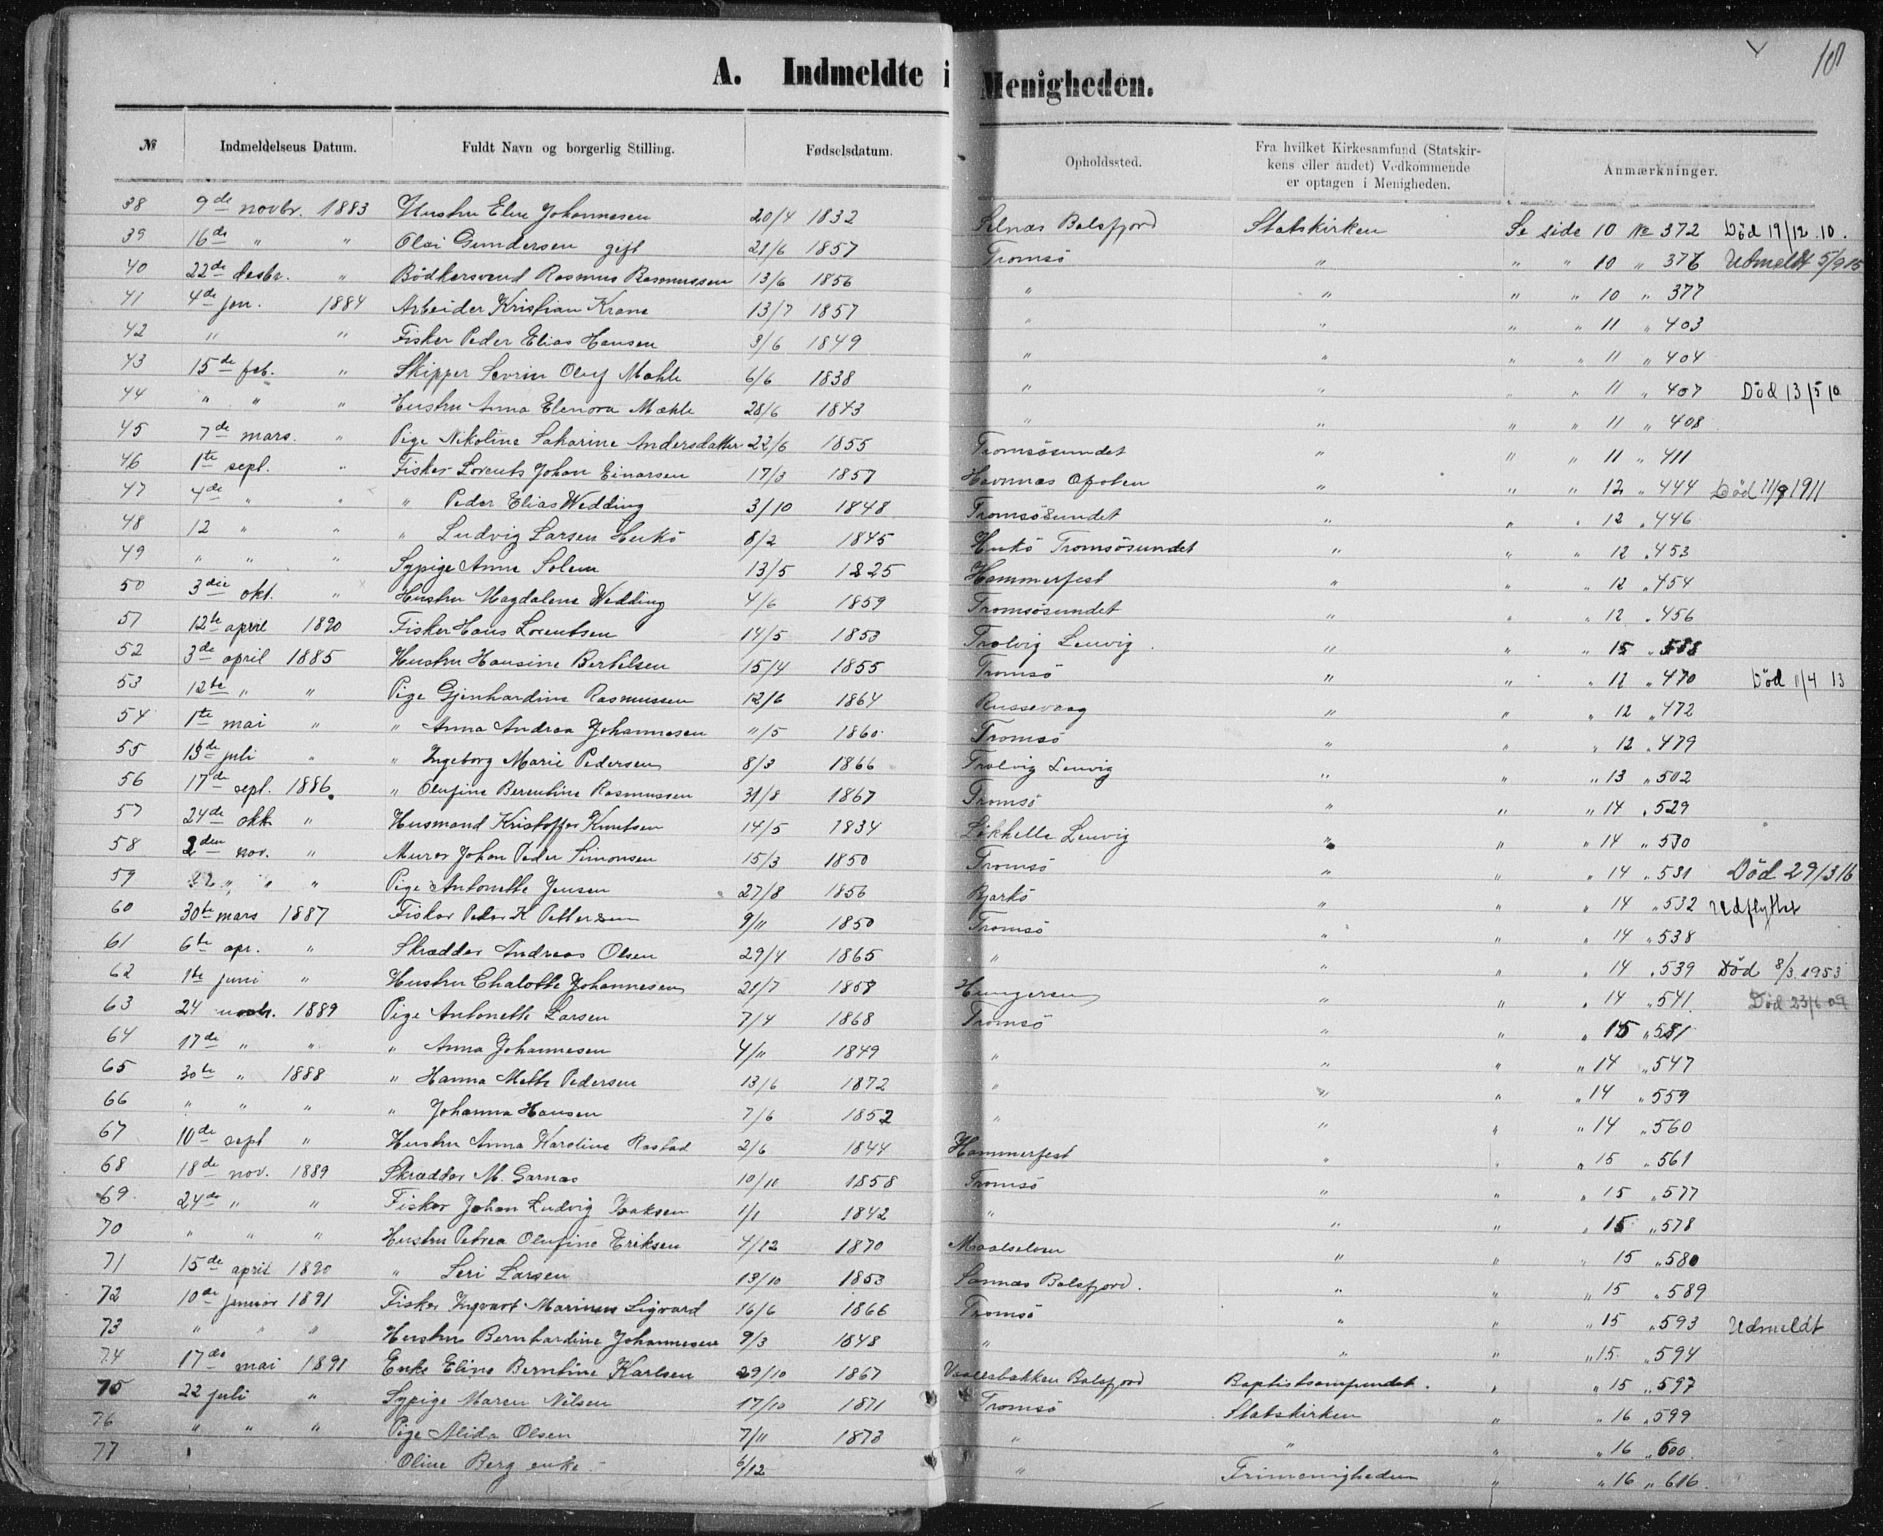 10
A. Indmeldte i Menigheden.
№ Indmeldelsens Datum. Fuldt Navn og borgerlig Stilling. Fødselsdatum. Opholdssted. Fra hvilket Kirkesamfund (Statskirkens eller andet) Vedkommende er optagen i Menigheden. Anmærkninger.
38 9de novbr. 1883 Hustru Eline Johannesen 20/4 1832 Selnæs Balsfjord Statskirken Se side 10 № 372 Död 19/12 10.
39 16de " " Olai Gundersen gift 21/6 1857 Tromsö " " " 10 " 376 Udmeldt 5/9 15
40 22de desbr. " Bödkersvend Rasmus Rasmussen 13/6 1856 " " " " 10 " 377
41 4de jan. 1884 Arbeider Kristian Krane 13/7 1857 " " " " 11 " 403
42 " " Fisker Peder Elias Hansen 3/6 1849 " " " " 11 " 404
43 15de feb. " Skipper Sevrin Oluf Mæhle 6/6 1838 " " " " 11 " 407 Död 13/5 10
44 " " " Hustru Anna Elenora Mæhle 28/6 1843 " " " " 11 " 408
45 7de mars. " Pige Nikoline Saharine Andersdatter 22/6 1855 Tromsösundet " " " 11 " 411
46 1te sept. " Fisker Lorents Johan Einarsen 17/3 1857 Havnnæs " " " 12 " 444 Död 11/9 1911
47 4de " " " Peder Elias Wedding 3/10 1848 Tromsösundet " " " 12 " 446
48 12 " " " Ludvig Larsen Hekö 8/2 1845 Hekö Tromsösundet " " " 12 " 453
49 " " " Sypige Anne Solem 13/5 1825 Hammerfest " " " 12 " 454
50 3die okt. " Hustru Magdalene Wedding 4/6 1859 Tromsösundet " " " 12 " 456
51 12te april 1890 Fisker Hans Lorentsen 14/5 1853 Trolvig Lenvig. " " " 15 " 588
52 3de april 1885 Hustru Hansine Bertilsen 15/4 1855 Tromsö " " " 12 " 470 Död 11/4 13
53 12te " " Pige Gjenhardine Rasmussen 12/6 1864 Russevaag " " " 12 " 472
54 1te mai " " Anna Andrea Johannesen "/5 1860 Tromsö " " " 12 " 479
55 13de juli " " Ingeborg Marie Pedersen 8/3 1866 Trolvig Lenvig " " " 13 " 502
56 17de sept. 1886. " Olufine Berentine Rasmussen 31/8 1867 Tromsö " " " 14 " 529
57 24de okt " Husmand Kristoffer Knutsen 14/5 1834 Lökhelle Lenvig " " " 14 " 530
58 2den nov. " Murer Johan Peder Simonsen 15/3 1850 Tromsö " " " 14 " 531 Död 29/3 16
59 22 " " " Pige Antonette Jensen 27/8 1856 Bjarkö " " " 14 " 532 Udflyttet
60 30te mars 1887 Fisker Peder K Pettersen 9/11 1850 Tromsö " " " 14 " 538
61 6te apr. " Skrædder Andreas Olsen 29/4 1865 " " " " 14 " 539 Död 8/3. 1953
62 1te juni " Hustru Chalotte Johannesen 21/7 1858 " " " 14 " 541. Död 23/6 09
63 24 novbr. 1889 Pige Antonette Larsen 7/4 1868 Tromsö " " " 15 " 581
64 17de " " " Anna Johannesen 4/11 1849 " " " " 14 " 547
65 30te " 1888 " Hanna Mette Pedersen 13/6 1872 " " " " 14 " 559
66 " " " " Johanna Hansen 7/6 1852 " " " " 14 " 560
67 10de sept " Hustru Anna Karoline Rastad 2/6 1844 Hammerfest " " " 15 " 561
68 18de nov. 1889 Skrædder M. Garnæs 10/10 1858 Tromsö " " " 15 " 577
69 24de " " Fisker Johan Ludvig Isaksen 1/1 1842 " " " " 15 " 578
70 " " " Hustru Petrea Olufine Eriksen 4/12 1870 Maalselven " " " 15 " 580
71 15de april 1890 " Seri Larsen 13/10 1853 Sannæs Balsfjord. " " " 15 " 589
72 10de januar 1891 Fisker Ingvart Marinus Sigvard 16/6 1866 Tromsö " " " 15 " 593 Udmeldt
73 " " " Hustru Bernhardine Johannesen 9/3 1848 " " " " 15. " 594
74 17de mai 1891 Enke Eline Berntine Karlsen 29/10 1867 Balsfjord Baptistsamfundet. " " 15 " 597
75 22 juli " Sypige Maren Nilsen 17/10 1871 Tromsö Statskirken " " 16 " 599
76 " " " Pige Alida Olsen 7/11 1873 " " " " 16 " 600
77 Oline Berg enke 6/12 " Frimenigheden " " 16 " 616.